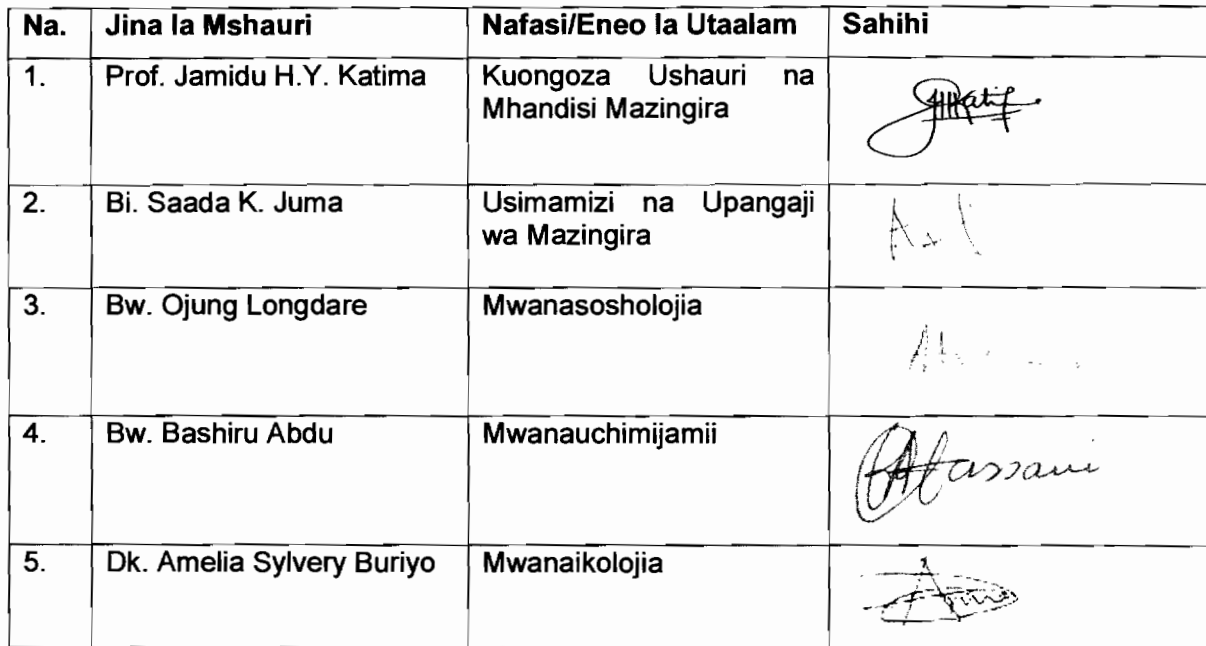 Na. Jina la Mshauri Nafasi/Eneo la Utaalam Sahihi
1. Prof. Jamidu H.Y. Katima Kuongoza Ushauri na
Mhandisi Mazingira
2. Bi. Saada K. Juma Usimamizi na Upangaji
wa Mazingira
3. Bw. Ojung Longdare Mwanasosholojia
4. Bw. Bashiru Abdu Mwanauchimijamii
5. Dk. Amelia Sylvery Buriyo Mwanaikolojia